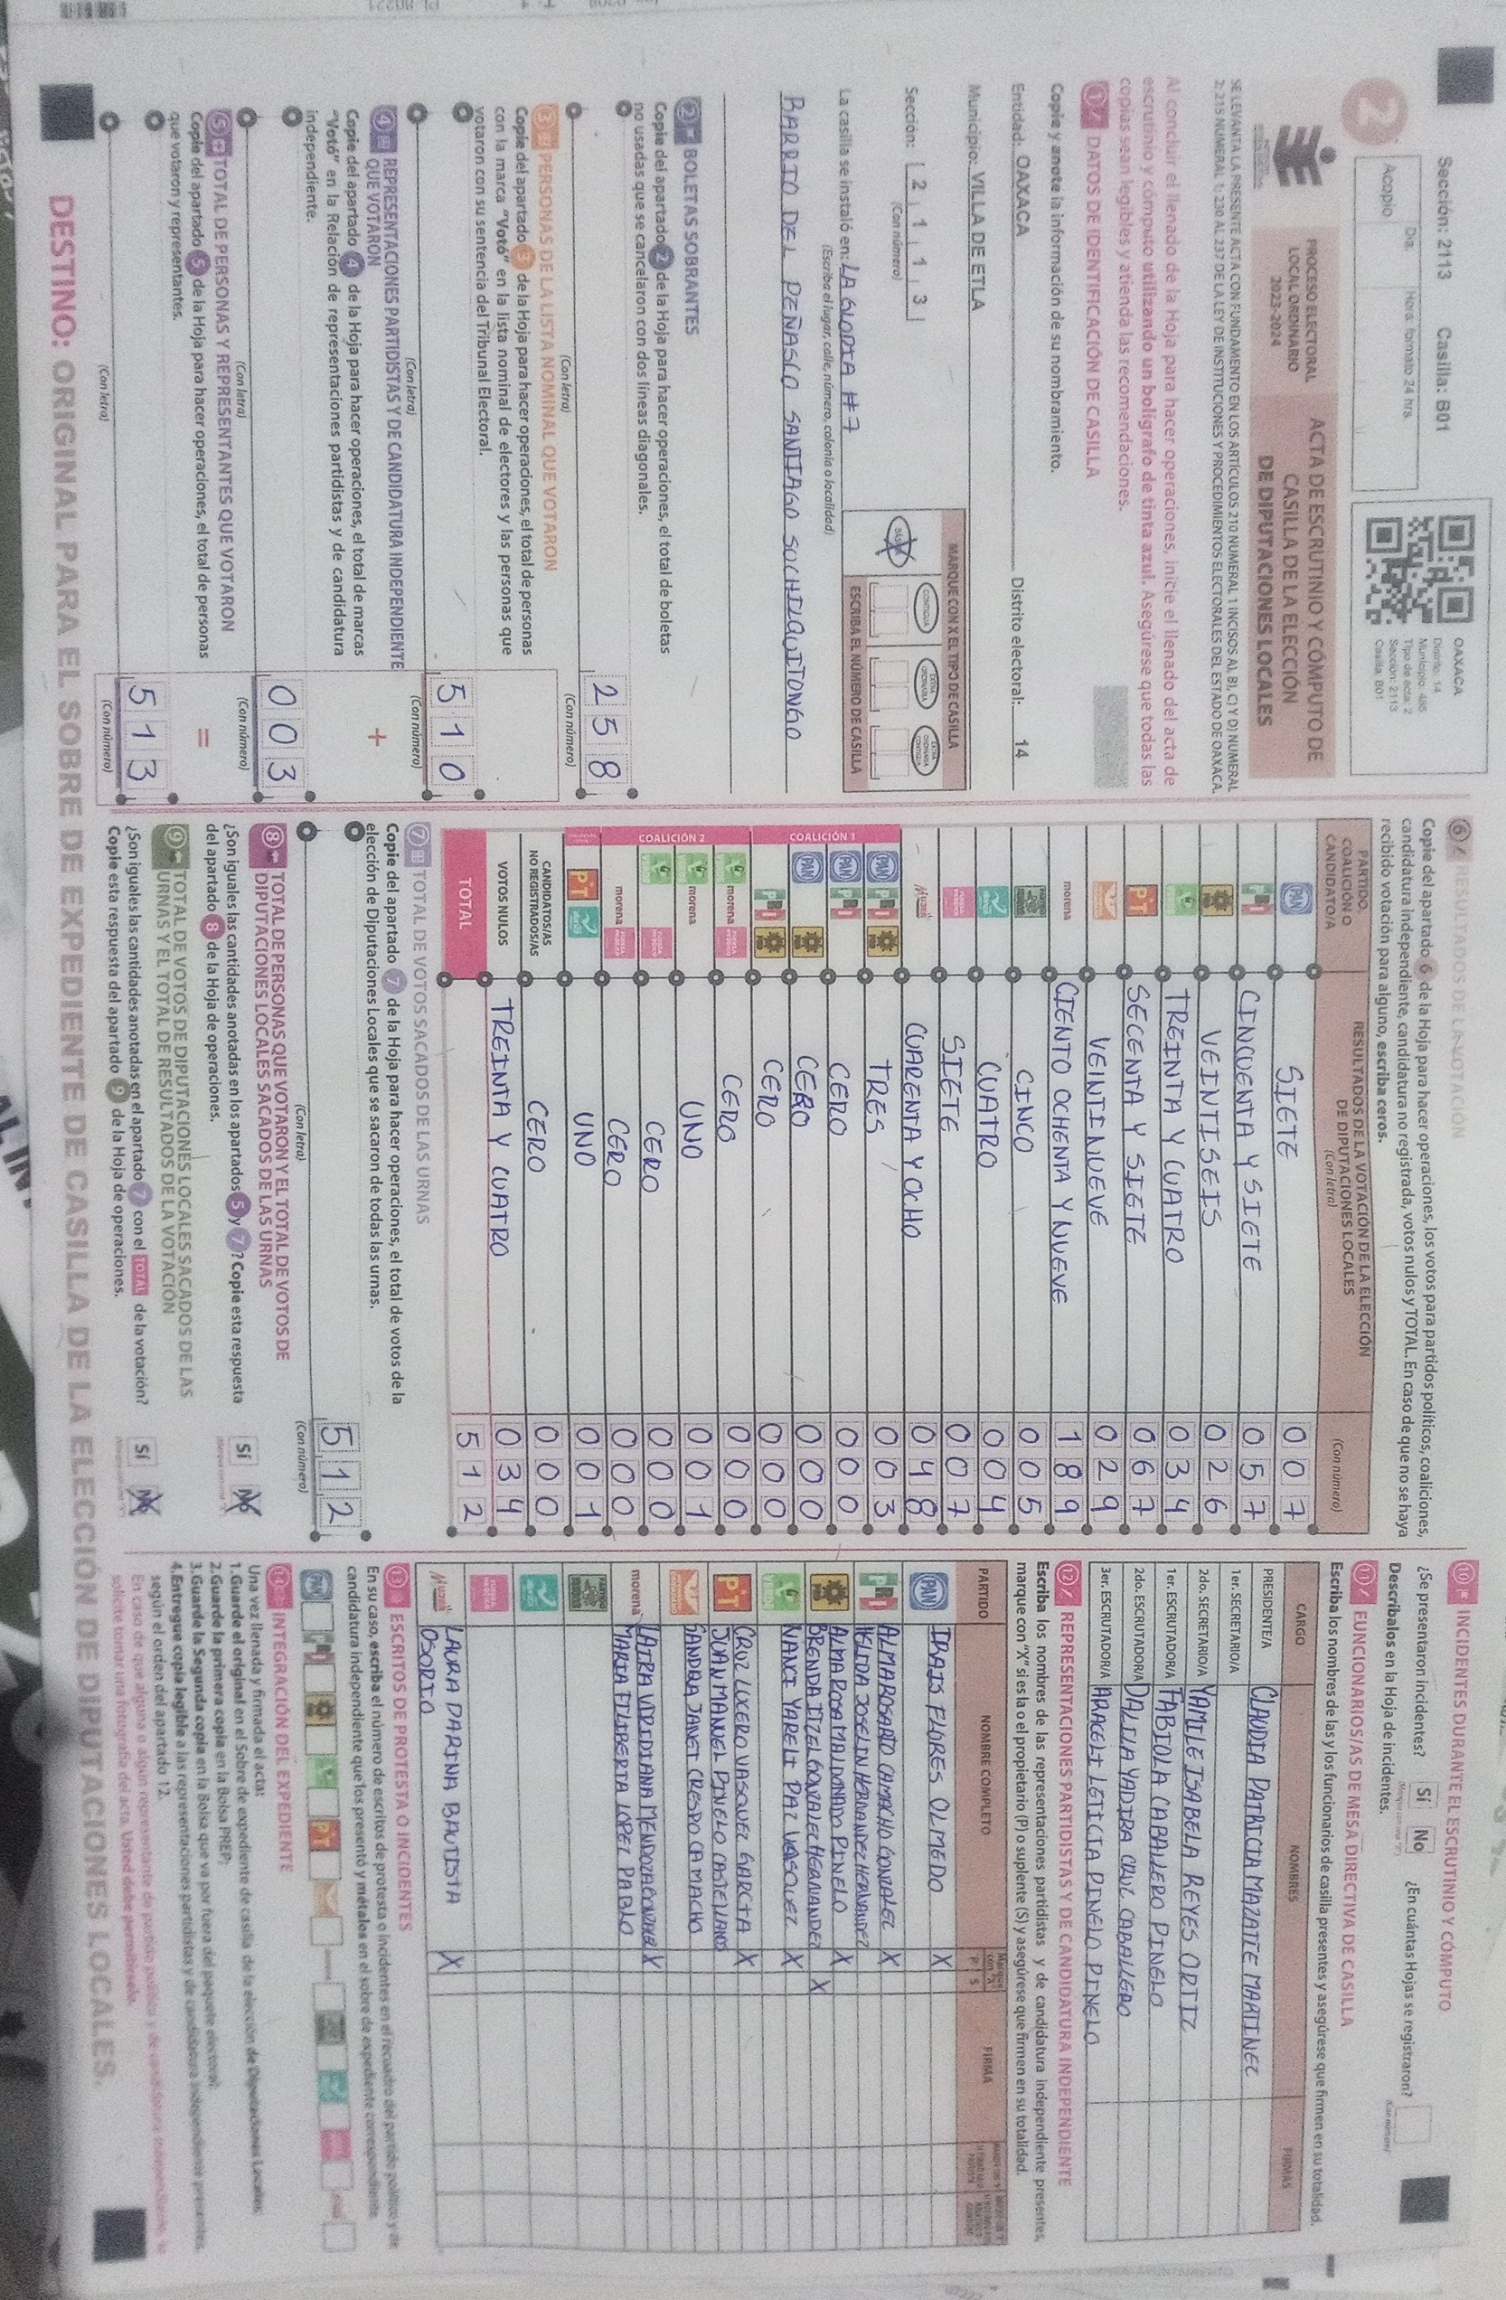 Sección: 2113 Casilla: B01
2
Día: Hora: formato 24 hrs.
Acopio
OAXACA
Distrito: 14
Municipio: 486
Tipo de acta: 2
Sección: 2113
Casilla: B01
PROCESO ELECTORAL
LOCAL ORDINARIO
2023-2024
ACTA DE ESCRUTINIO Y CÓMPUTO DE
CASILLA DE LA ELECCIÓN
DE DIPUTACIONES LOCALES
SE LEVANTA LA PRESENTE ACTA CON FUNDAMENTO EN LOS ARTÍCULOS 210 NUMERAL 1 INCISOS A), B), C) Y D) NUMERAL
2; 215 NUMERAL 1; 230 AL 237 DE LA LEY DE INSTITUCIONES Y PROCEDIMIENTOS ELECTORALES DEL ESTADO DE OAXACA.
Al concluir el llenado de la Hoja para hacer operaciones, inicie el llenado del acta de
escrutinio y cómputo utilizando un bolígrafo de tinta azul. Asegúrese que todas las
copias sean legibles y atienda las recomendaciones.
1 DATOS DE IDENTIFICACIÓN DE CASILLA
Copie y anote la información de su nombramiento.
Entidad: OAXACA Distrito electoral: 14
Municipio: VILLA DE ETLA
Sección: 2 1 1 3
(Con número)
MARQUE CON X EL TIPO DE CASILLA
ESCRIBA EL NÚMERO DE CASILLA
La casilla se instaló en: LA GLORIA #7
(Escriba el lugar, calle, número, colonia o localidad)
BARRIO DEL PEÑASCO SANTIAGO SUCHILQUITONGO
2 BOLETAS SOBRANTES
Copie del apartado 2 de la Hoja para hacer operaciones, el total de boletas
no usadas que se cancelaron con dos líneas diagonales.
258
(Con letra) (Con número)
3 PERSONAS DE LA LISTA NOMINAL QUE VOTARON
Copie del apartado 3 de la Hoja para hacer operaciones, el total de personas
con la marca "Votó" en la lista nominal de electores y las personas que
votaron con su sentencia del Tribunal Electoral.
510
(Con letra) (Con número)
4 REPRESENTACIONES PARTIDISTAS Y DE CANDIDATURA INDEPENDIENTE
QUE VOTARON
+
Copie del apartado 4 de la Hoja para hacer operaciones, el total de marcas
"Votó" en la Relación de representaciones partidistas y de candidatura
independiente.
003
(Con letra) (Con número)
5 TOTAL DE PERSONAS Y REPRESENTANTES QUE VOTARON
=
Copie del apartado 5 de la Hoja para hacer operaciones, el total de personas
que votaron y representantes.
513
(Con letra) (Con número)
6 RESULTADOS DE LA VOTACIÓN
Copie del apartado 6 de la Hoja para hacer operaciones, los votos para partidos políticos, coaliciones,
candidatura independiente, candidatura no registrada, votos nulos y TOTAL. En caso de que no se haya
recibido votación para alguno, escriba ceros.
PARTIDO,
COALICIÓN O
CANDIDATO/A
RESULTADOS DE LA VOTACIÓN DE LA ELECCIÓN
DE DIPUTACIONES LOCALES
(Con letra) (Con número)
PAN SIETE 007
PRI CINCUENTA Y SIETE 057
VEINTISEIS 026
TREINTA Y CUATRO 034
PT SECENTA Y SIETE 067
VEINTINUEVE 029
morena CIENTO OCHENTA Y NUEVE 189
CINCO 005
CUATRO 004
SIETE 007
CUARENTA Y OCHO 048
COALICIÓN 1
PAN PRI TRES 003
PAN PRI CERO 000
PAN CERO 000
PRI CERO 000
COALICIÓN 2
morena CERO 000
morena UNO 001
CERO 000
morena CERO 000
PT UNO 001
CANDIDATOS/AS
NO REGISTRADOS/AS CERO 000
VOTOS NULOS TREINTA Y CUATRO 034
TOTAL 512
7 TOTAL DE VOTOS SACADOS DE LAS URNAS
Copie del apartado 7 de la Hoja para hacer operaciones, el total de votos de la
elección de Diputaciones Locales que se sacaron de todas las urnas.
512
(Con letra) (Con número)
8 TOTAL DE PERSONAS QUE VOTARON Y EL TOTAL DE VOTOS DE
DIPUTACIONES LOCALES SACADOS DE LAS URNAS
¿Son iguales las cantidades anotadas en los apartados 5 y 7? Copie esta respuesta
del apartado 8 de la Hoja de operaciones.
Sí
9 TOTAL DE VOTOS DE DIPUTACIONES LOCALES SACADOS DE LAS
URNAS Y EL TOTAL DE RESULTADOS DE LA VOTACIÓN
¿Son iguales las cantidades anotadas en el apartado 7 con el TOTAL de la votación?
Copie esta respuesta del apartado 9 de la Hoja de operaciones.
Sí
10 INCIDENTES DURANTE EL ESCRUTINIO Y CÓMPUTO
¿Se presentaron incidentes? Sí No ¿En cuántas Hojas se registraron?
Descríbalos en la Hoja de incidentes.
11 FUNCIONARIOS/AS DE MESA DIRECTIVA DE CASILLA
Escriba los nombres de las y los funcionarios de casilla presentes y asegúrese que firmen en su totalidad.
CARGO NOMBRES FIRMAS
PRESIDENTE/A CLAUDIA PATRICIA MAZATTE MARTINEZ
1er. SECRETARIO/A
2do. SECRETARIO/A YAMILE ISABELA REYES ORTIZ
1er. ESCRUTADOR/A FABIOLA CABALLERO PINELO
2do. ESCRUTADOR/A DALILA YADIRA CRUZ CABALLERO
3er. ESCRUTADOR/A ARACELI LETICIA PINELO PINELO
12 REPRESENTACIONES PARTIDISTAS Y DE CANDIDATURA INDEPENDIENTE
Escriba los nombres de las representaciones partidistas y de candidatura independiente presentes,
marque con "X" si es la o el propietario (P) o suplente (S) y asegúrese que firmen en su totalidad.
PARTIDO NOMBRE COMPLETO P S FIRMA
PAN IRAIS FLORES OLMEDO X
PRI ALMA ROSARIO CAMACHO GONZALEZ X
HELIDA JOSELIN HERNANDEZ HERNANDEZ
ALMA ROSA MALDONADO PINELO X
BRENDA ITZEL GONZALEZ HERNANDEZ X
NANCI YARELI PAZ VASQUEZ X
PT CRUZ LUCERO VASQUEZ GARCIA X
JUAN MANUEL PINELO CASTELLANOS
SANDRA JANET CRESPO CAMACHO
morena LAIRA VIRIDIANA MENDOZA GONZALEZ X
MARIA FILIBERTA LOPEZ PABLO
LAURA DARINA BAUTISTA X
OSORIO
13 ESCRITOS DE PROTESTA O INCIDENTES
En su caso, escriba el número de escritos de protesta o incidentes en el recuadro del partido político y de
candidatura independiente que los presentó y métalos en el sobre de expediente correspondiente.
14 INTEGRACIÓN DEL EXPEDIENTE
Una vez llenada y firmada el acta:
1. Guarde el original en el Sobre de expediente de casilla de la elección de Diputaciones Locales;
2. Guarde la primera copia en la Bolsa PREP;
3. Guarde la Segunda copia en la Bolsa que va por fuera del paquete electoral;
4. Entregue copia legible a las representaciones partidistas y de candidatura independiente presentes,
según el orden del apartado 12.
En caso de que alguna o algún representante de partido político y de candidatura independiente, se
solicite tomar una fotografía del acta, Usted debe permitírselo.
DESTINO: ORIGINAL PARA EL SOBRE DE EXPEDIENTE DE CASILLA DE LA ELECCIÓN DE DIPUTACIONES LOCALES.